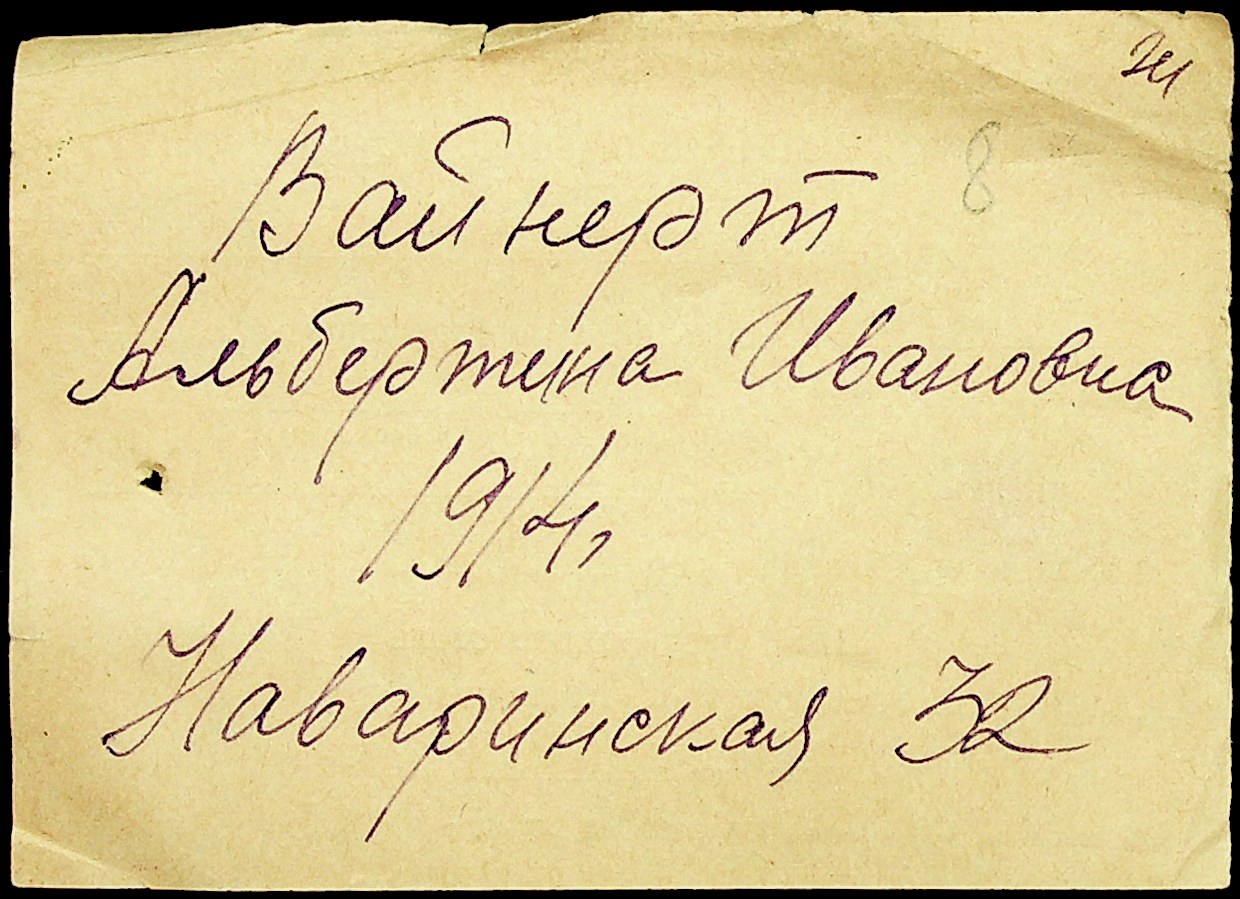 8
Вайнерт
Альбертина Ивановна
1914г
Наваринская 32